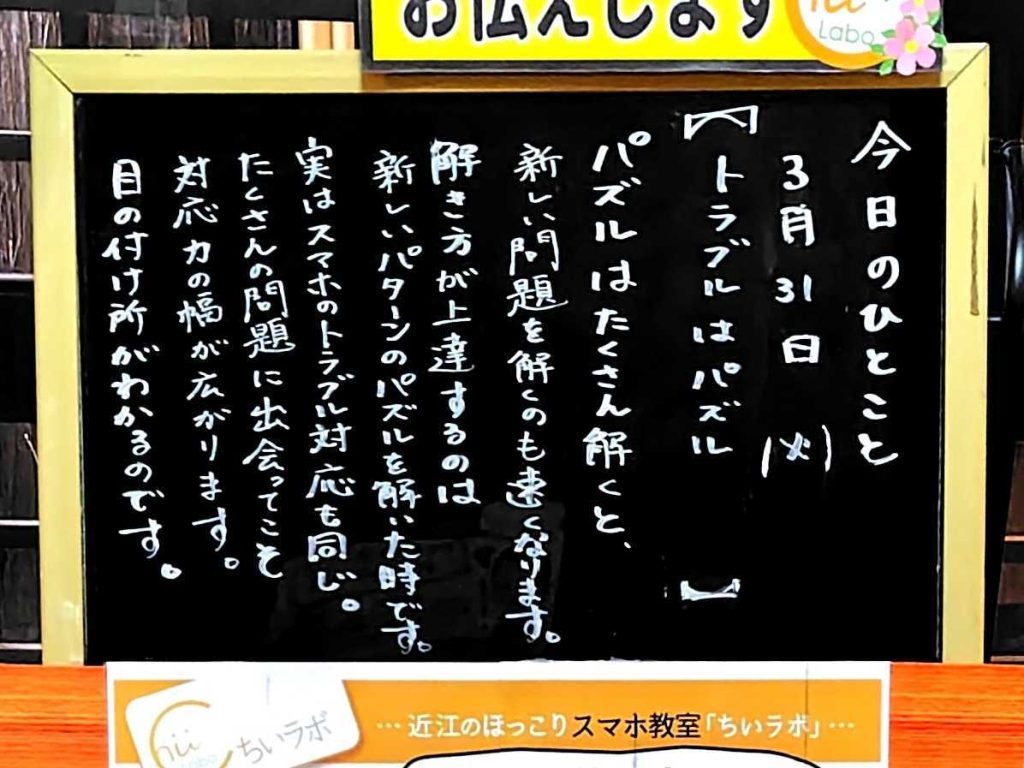 お伝えします
Labo
今日のひとこと
3月31日(火)
【トラブルはパズル】
パズルはたくさん解くと、
新しい問題を解くのも速くなります。
解き方が上達するのは
新しいパターンのパズルを解いた時です。
実はスマホのトラブル対応も同じ。
たくさんの問題に出会ってこそ
対応力の幅が広がります。
目の付け所がわかるのです。
ちいラボ
…近江のほっこりスマホ教室「ちいラボ」…